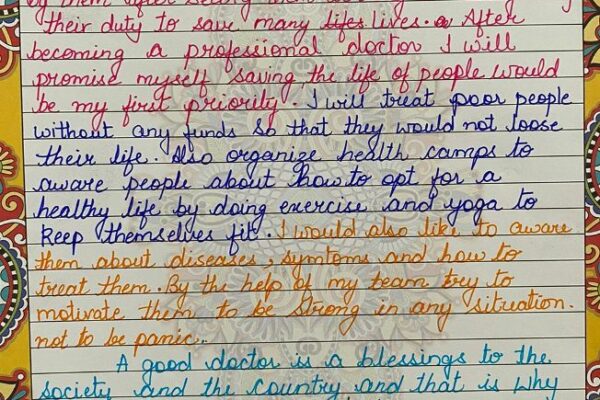 their duty to save many lifes lives. After
becoming a professional doctor I will
promise myself saving the life of people would
be my first priority. I will treat poor people
without any funds so that they would not loose
their life. Also organize health camps to
aware people about how to opt for a
healthy life by doing exercise and yoga to
keep themselves fit. I would also like to aware
them about diseases, symtoms and how to
treat them. By the help of my team try to
motivate them to be strong in any situation.
not to be panic.
A good doctor is a blessings to the
society and the country and that is why